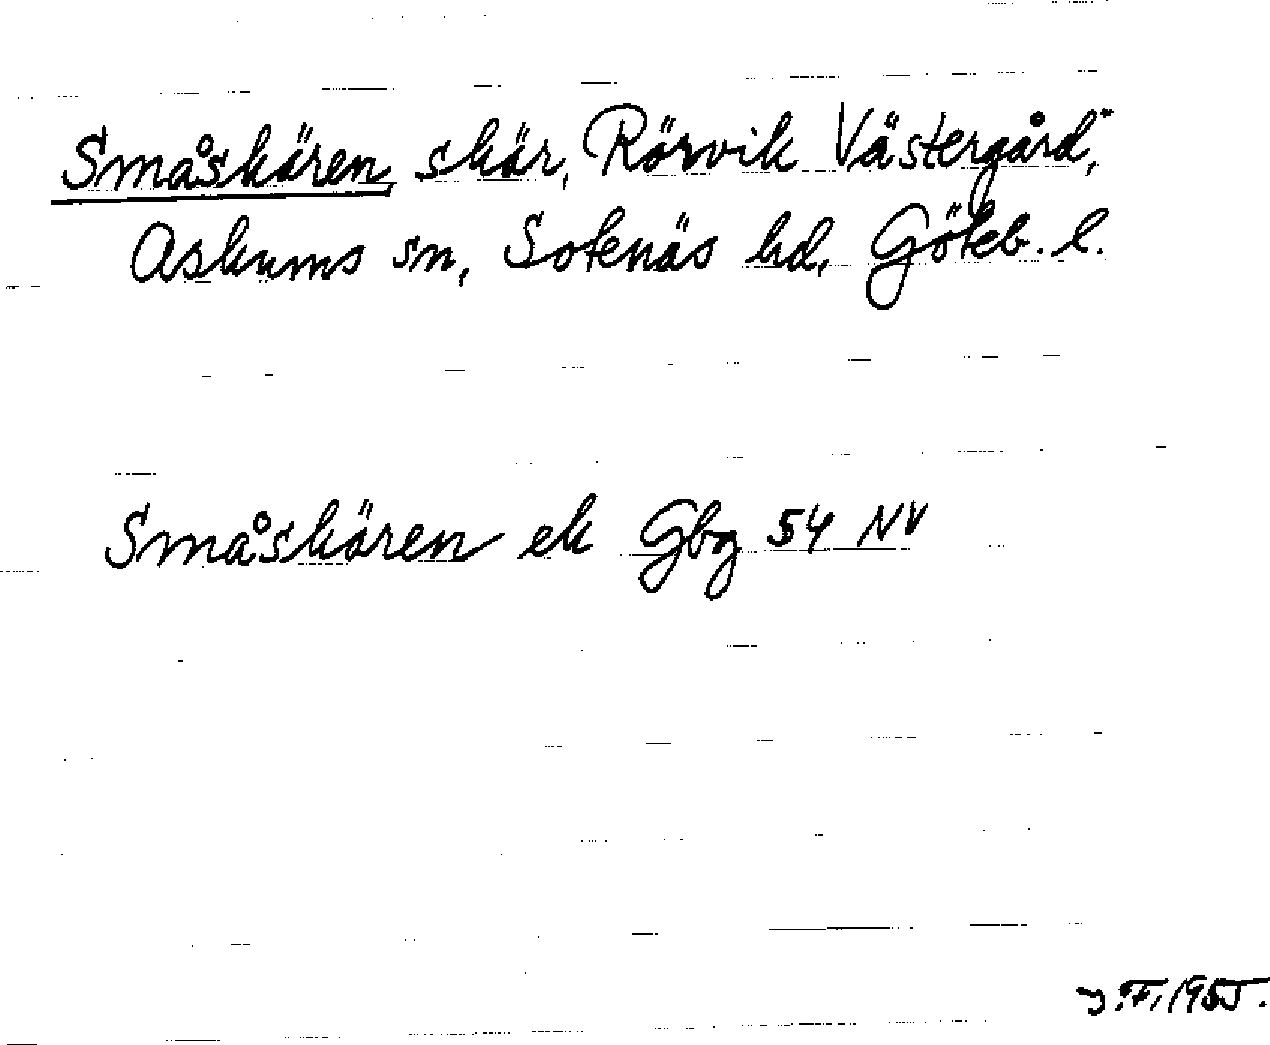 Småskären, skär, Rörvik Västergård,
Askums sn, Sotenäs hd, Göteb. l.
Småskären ek Gbg 54 NV
1955.